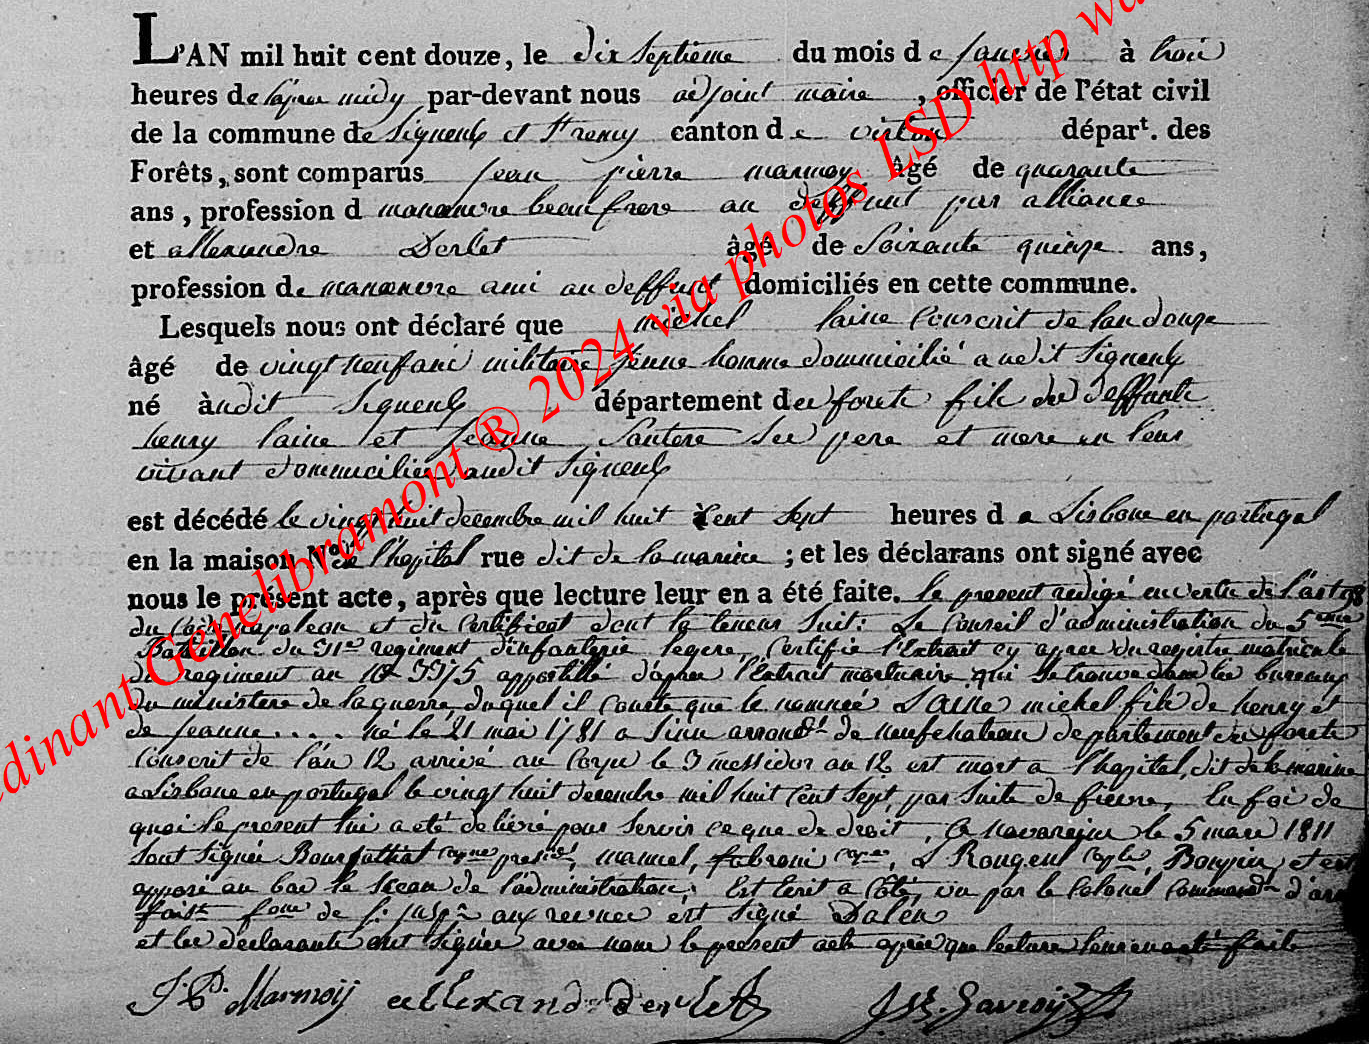 L'AN mil huit cent douze, le dix septieme du mois de janvier à trois
heures de l'apres midy par-devant nous adjoint maire, officier de l'état civil
de la commune de Signeulx et St remy canton de virton départ. des
Forêts, sont comparus jean pierre marmoy âgé de quarante
ans, profession d manoeuvre beaufrere au deffunt par alliance
et allexandre Derlet âgé de Soixante quinze ans,
profession de manoeuvre ami au deffunt domiciliés en cette commune.
Lesquels nous ont déclaré que michel laine Conscrit de lan douze
âgé de vingt neuf ans militaire jeune homme dommicilié audit Signeulx
né à audit Signeulx département des forets fils des deffunts
henry laine et jeanne Santere Ses pere et mere en leur
vivant dommiciliés audit Signeulx
est décédé le vingt huit decembre mil huit Cent Sept heures d a Lisbone en portugal
en la maison N° de l'hopital rue dit de la marine ; et les déclarans ont signé avec
nous le présent acte, après que lecture leur en a été faite. le present redigé en vertu de l'art 98
du Code napoleon et du Certificat dont la teneur Suit: Le Conseil d'administration du 5eme
Bataillon du 31e regiment d'infanterie legere, Certifie l'Extrait cy apres du registre matricule
du regiment au N° 3375 appostillé d'apres l'Extrait mortuaire qui Se trouve dans les bureaux
du ministere de la guerre, duquel il Conste que le nommé LAINE michel fils de henry et
de jeanne . . . . né le 21 mai 1781 a Sinu arrondt de neufchateau departement des forets
Conscrit de l'an 12 arrivé au Corps le 3 messidor an 12 est mort a l'hopital, dit de la marine
a Lisbone en portugal le vingt huit decembre mil huit Cent Sept, par Suite de fievre, En foi de
quoi le present lui a eté delivré pour Servir ce que de droit, le 5 mars 1811
Sont Signés manuel, fabroni L Rougeul et est
apposé au bas le Sceau de l'administration; Est Ecrit a Côté, vu par le Colonel Commandt d'arm
faist fons de s. insp. aux revues est Signé Dalen
et les declarants ont Signés avec nous le present acte après que lecture leur en a eté faite
J. P. Marmoij allexandr derlet Gavroij
edinant Genelibramont ® 2024 via photos LSD http wa